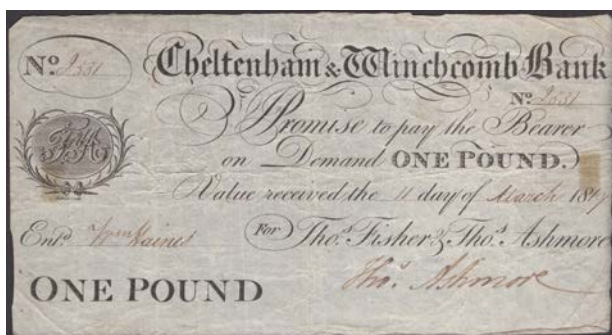 No. 9331 Cheltenham & Winchcomb Bank
No. 9331
I Promise to pay the Bearer
on Demand ONE POUND.
Value received the 11 day of March 18
Entd. Wm Haines For Thos. Fisher & Thos. Ashmore
ONE POUND Thos. Ashmore